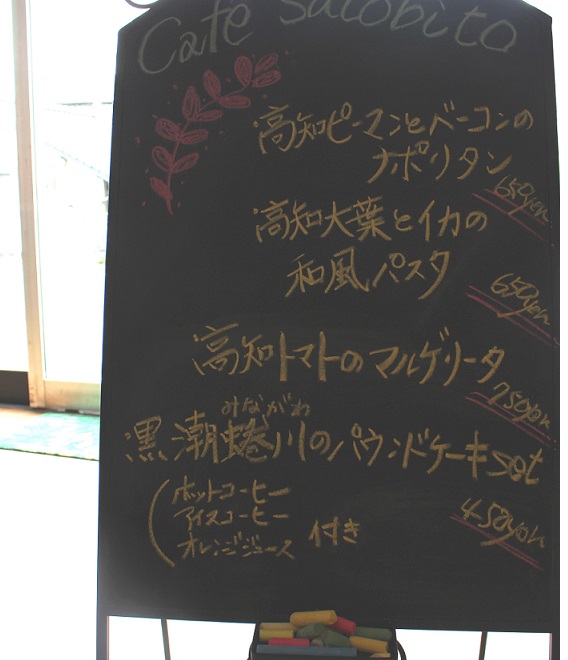 Cafe Satobito
高知ピーマンとベーコンの
ナポリタン
650yen
高知大葉とイカの
和風パスタ
650yen
高知トマトのマルゲリータ
750yen
みながわ
黒潮蜷川のパウンドケーキset
(ホットコーヒー
アイスコーヒー
オレンジジュース
付き
450yen